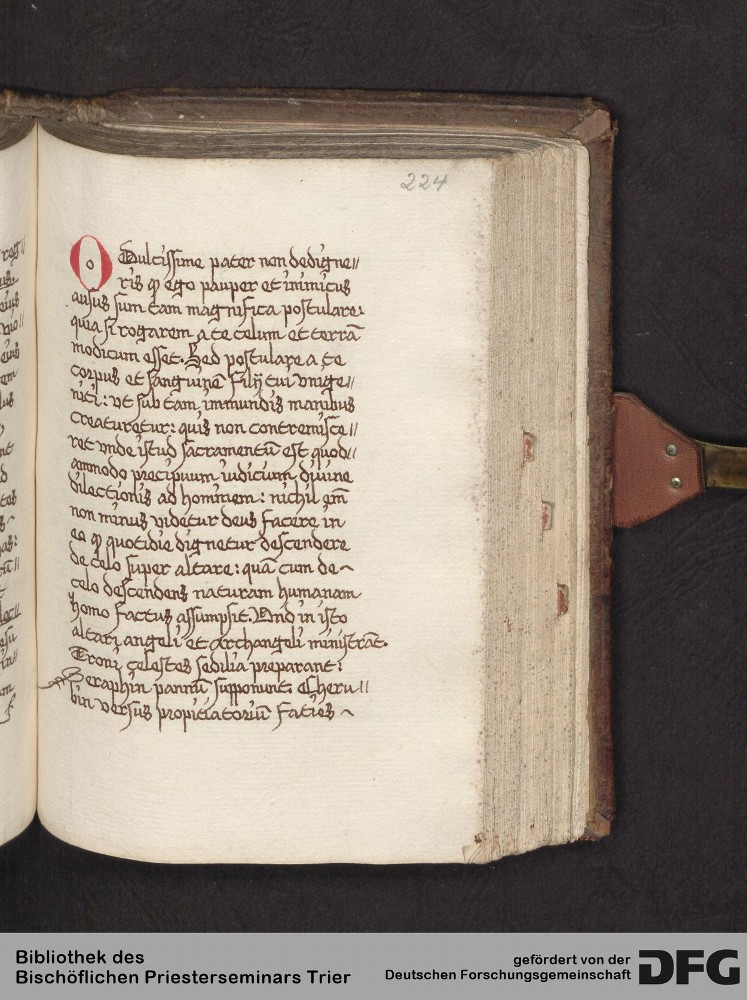 224
O Dulcissime pater non dedigne//
ris qꝫ ego pauper et inimicus
ausus sum tam magnifica postulare.
quia si rogarem a te celum et terrā
modicum esset. Sed postulare a te
corpus et sanguinē filij tui vnige//
niti: vt sub tam immundis manibus
creaturetur: quis non contremisce//
ret vnde istud sacramentū est quod//
ammodo precipuum iudicium diuine
dilectionis ad hominem: nichil em̄
non minus videtur deus facere in
eo qꝫ quotidie dignetur descendere
de celo super altare: quā cum de
celo descendens naturam humanam
homo factus assumpsit. Vnd in isto
altari angeli et archangeli ministrāt.
Troni celestes sedilia preparant:
Seraphin pannū supponunt: Cheru//
bin versus propitiatoriū faties
Bibliothek des
Bischöflichen Priesterseminars Trier
gefördert von der
Deutschen Forschungsgemeinschaft
DFG